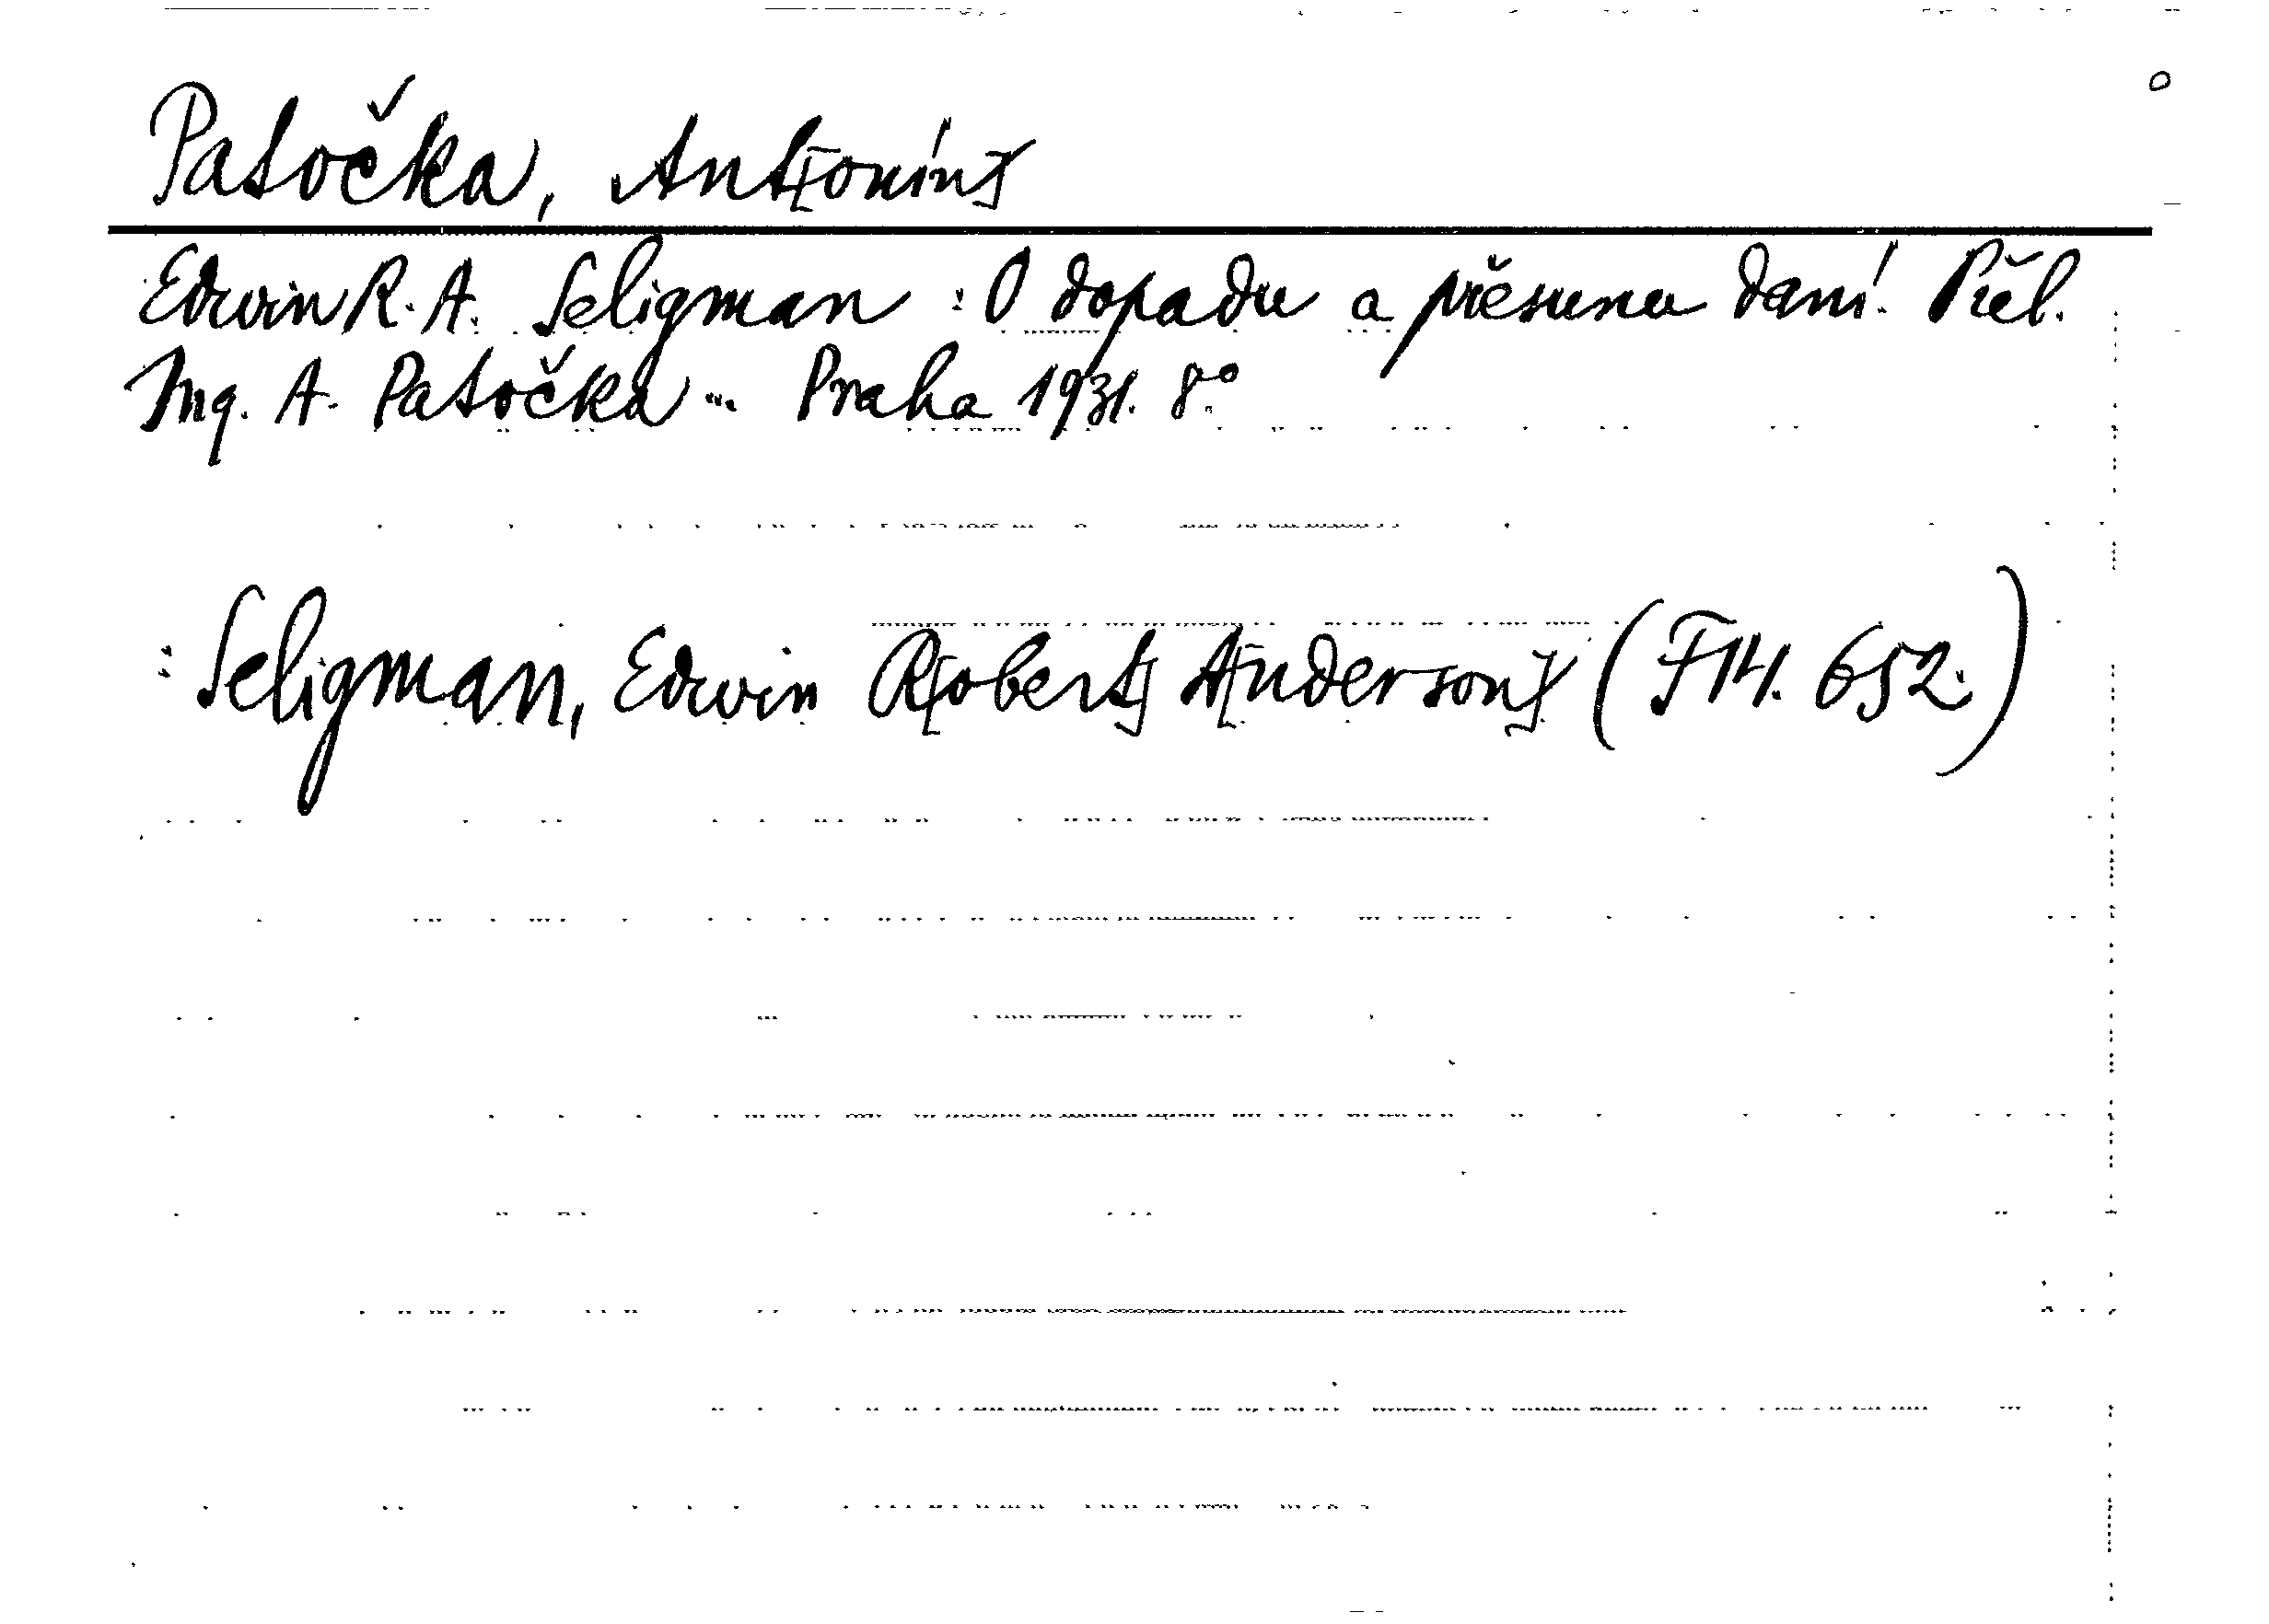 Patočka, Ant[onín]
Edwin R. A. Seligman : O dopadu a přesunu daní. Přel.
Ing. A. Patočka ... Praha 1931. 8°.
: Seligman, Edwin R[obert] A[nderson] (F 14. 652.)